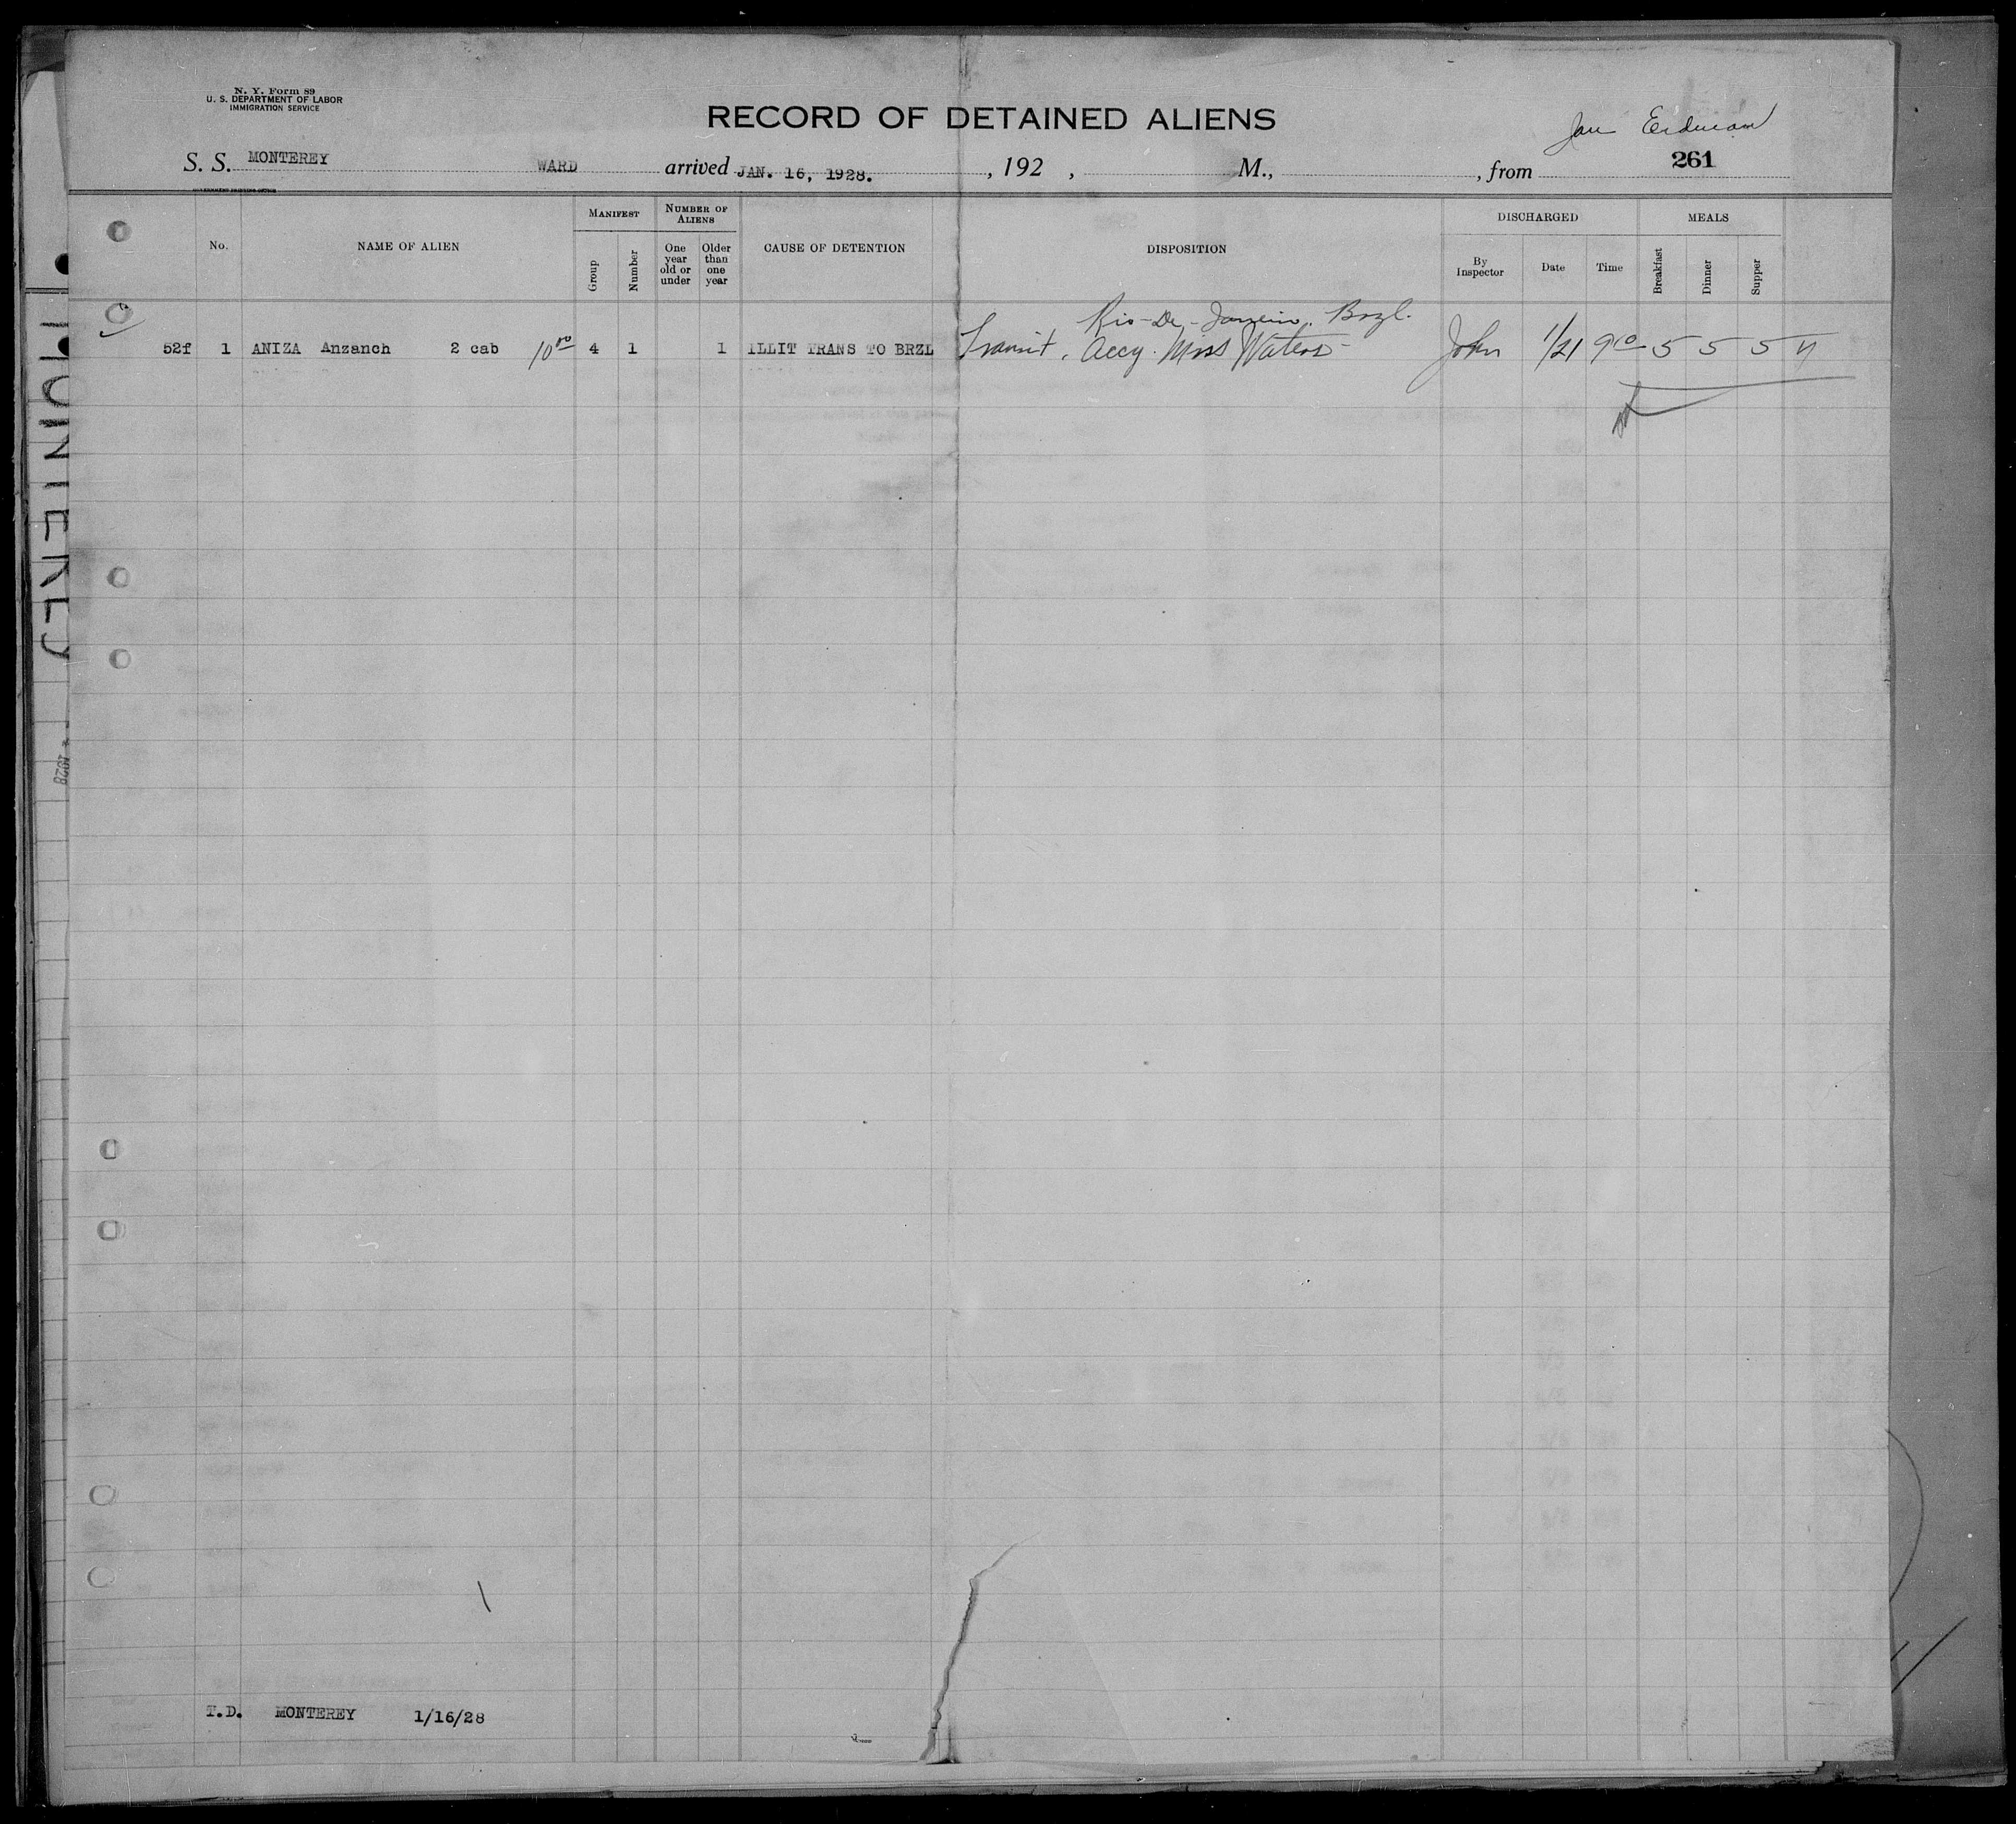 N. Y. Form 89
U. S. DEPARTMENT OF LABOR
IMMIGRATION SERVICE
RECORD OF DETAINED ALIENS
S. S. MONTEREY WARD arrived JAN. 16, 1928. , 192 , M., , from 261
GOVERNMENT PRINTING OFFICE
No. NAME OF ALIEN MANIFEST Group Number NUMBER OF ALIENS One year old or under Older than one year CAUSE OF DETENTION DISPOSITION DISCHARGED By Inspector Date Time MEALS Breakfast Dinner Supper
Rio-De-Janeiro. Brzl.
52f 1 ANIZA Anzanch 2 cab 10 00 4 1 1 ILLIT TRANS TO BRZL Transit. Accy. Miss Waters- John 1/21 9 10 5 5 5 4
T.D. MONTEREY 1/16/28
MONTEREY
1928